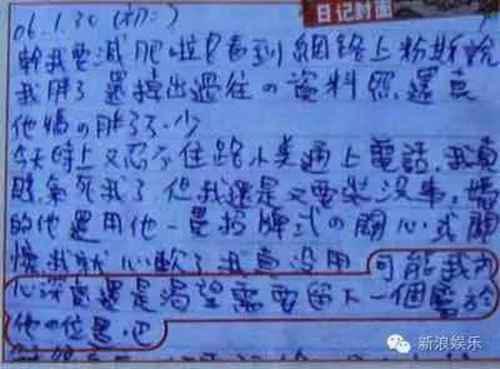 日记封面
06.1.30 (初二)
幹我要減肥啦 只看到網路上粉斯說
我胖了 還掉出過往の資料照,還真
他媽の胖了不少
今天時上又忍不住路小美通上電話,我真
氣死我了 但我還是又要裝沒事,媽
的他還用他一貫招牌式の開心式
懷我就心軟了 我真沒用 可能我內
心深處還是渴望需要留下一個屬於
他の位置吧
新浪娱乐